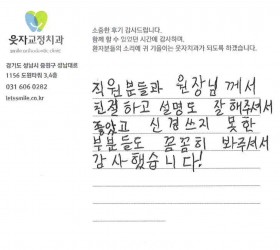 웃자교정치과
smile orthodontic clinic
경기도 성남시 중원구 성남대로
1156 도원타워 3,4층
031 606 0282
letssmile.co.kr
소중한 후기 감사드립니다.
함께 할 수 있었던 시간에 감사하며,
환자분들의 소리에 귀 기울이는 웃자치과가 되도록 하겠습니다.
직원분들과 원장님께서
친절하고 설명도 잘해주셔서
좋았고 신경쓰지 못한
부분들도 꼼꼼히 봐주셔서
감사했습니다!